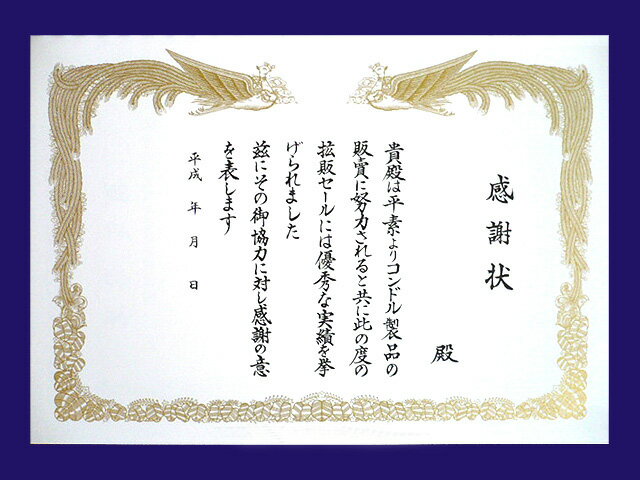 感謝状
殿
貴殿は平素よりコンドル製品の
販賣に努力されると共に此の度の
拡販セールには優秀な実績を挙
げられました
茲にその御協力に対し感謝の意
を表します
平成 年 月 日